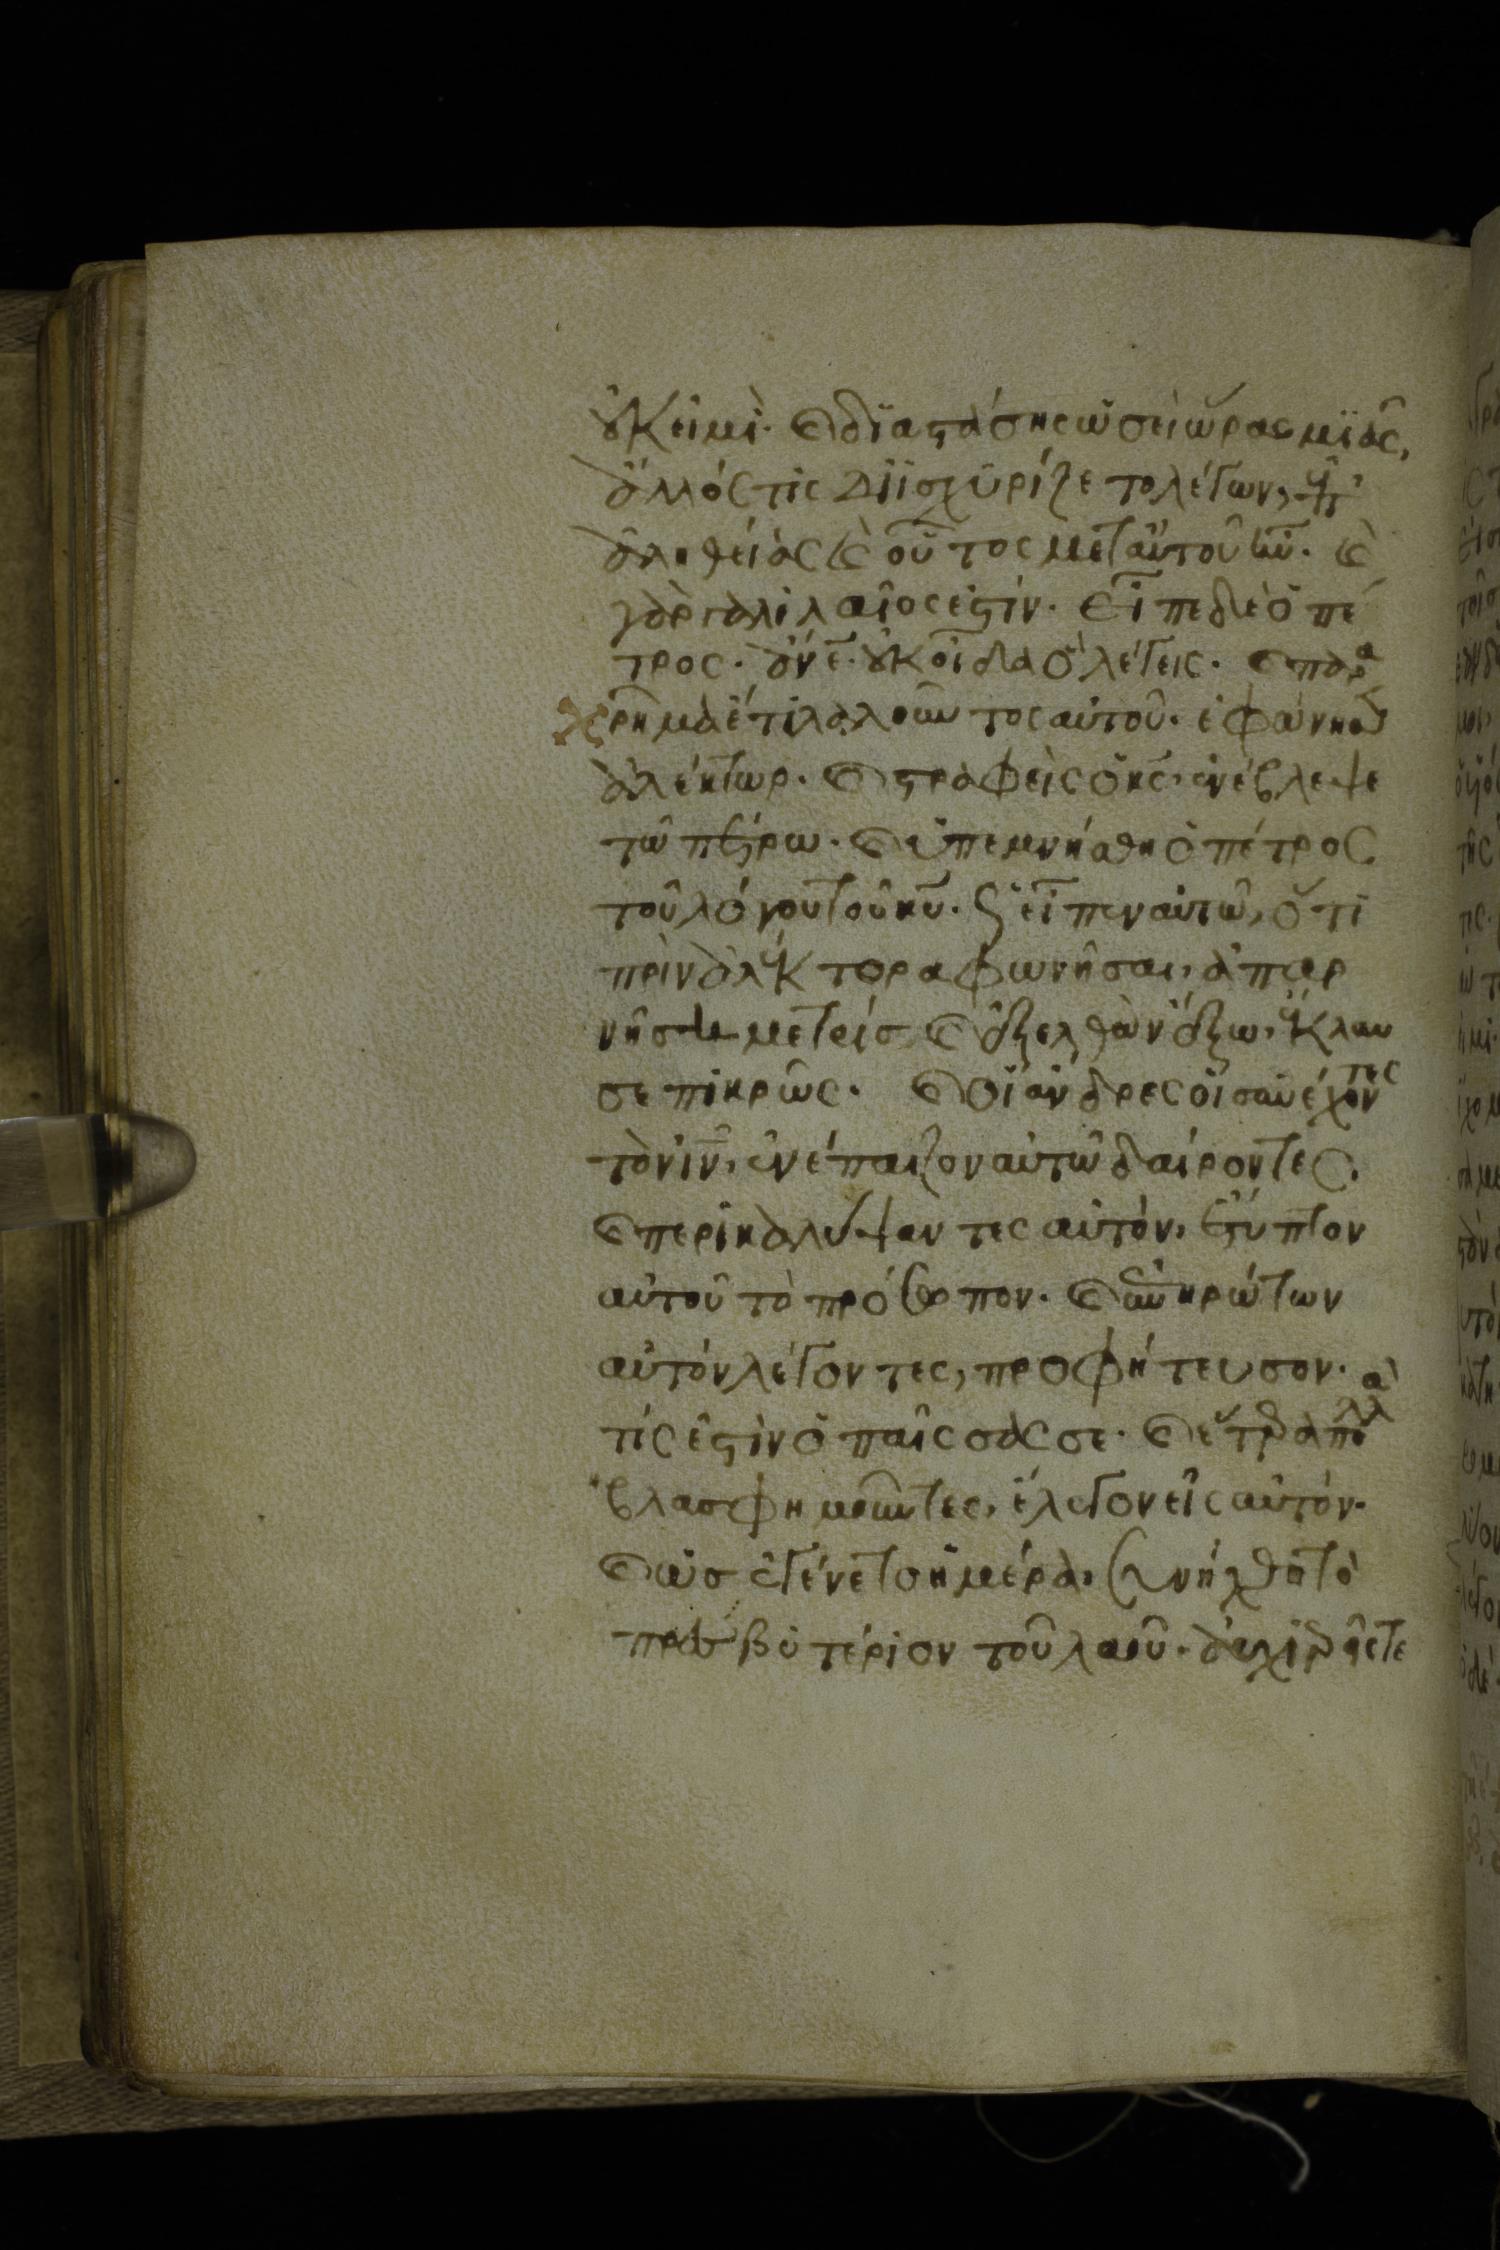 οὐκ εἰμὶ. καὶ διαστάσης ὡσεὶ ὥρας μιᾶς,
ἄλλός τις διϊσχυρίζετο λέγων, ἐπ
ἀληθείας καὶ οὗτος μετ αὐτοῦ ἦν. καὶ
γὰρ γαλιλαῖος ἐστίν. εἶπε δὲ ὁ πέ
τρος. ἄνε. οὐκ οἶδα ὃ λέγεις. καὶ παρα
χρῆμα ἔτι λαλοῦντος αὐτοῦ. ἐφώνησεν
ἀλέκτωρ. καὶ στραφεὶς ὁ κς, ἐνέβλεψε
τῶ πέτρω. καὶ ὑπεμνήσθη ὁ πέτρος
τοῦ λόγου τοῦ κυ. ὡς εἶπεν αὐτῶ, ὅτι
πρὶν ἀλέκτορα φωνῆσαι, ἀπαρ
νήση με τρίς καὶ ἐξελθὼν ἔξω, ἔκλαυ
σε πικρῶς. καὶ οἱ ἄνδρες οἱ συνέχοντες
τὸν ιν, ἐνέπαιζον αὐτῶ δαίροντες.
καὶ περικαλύψαντες αὐτόν, ἔτυπτον
αὐτοῦ τὸ πρόσωπον. καὶ ἐπηρώτων
αὐτὸν λέγοντες, προφήτευσον.
τίς ἐστὶν ὁ παίσας σε. καὶ ἕτερα πολλὰ
βλασφημοῦντες, ἔλεγον εἰς αὐτόν.
καὶ ὡς ἐγένετο ἡμέρα, συνήχθη τὸ
πρεσβυτέριον τοῦ λαοῦ. ἀρχιερεῖς τε